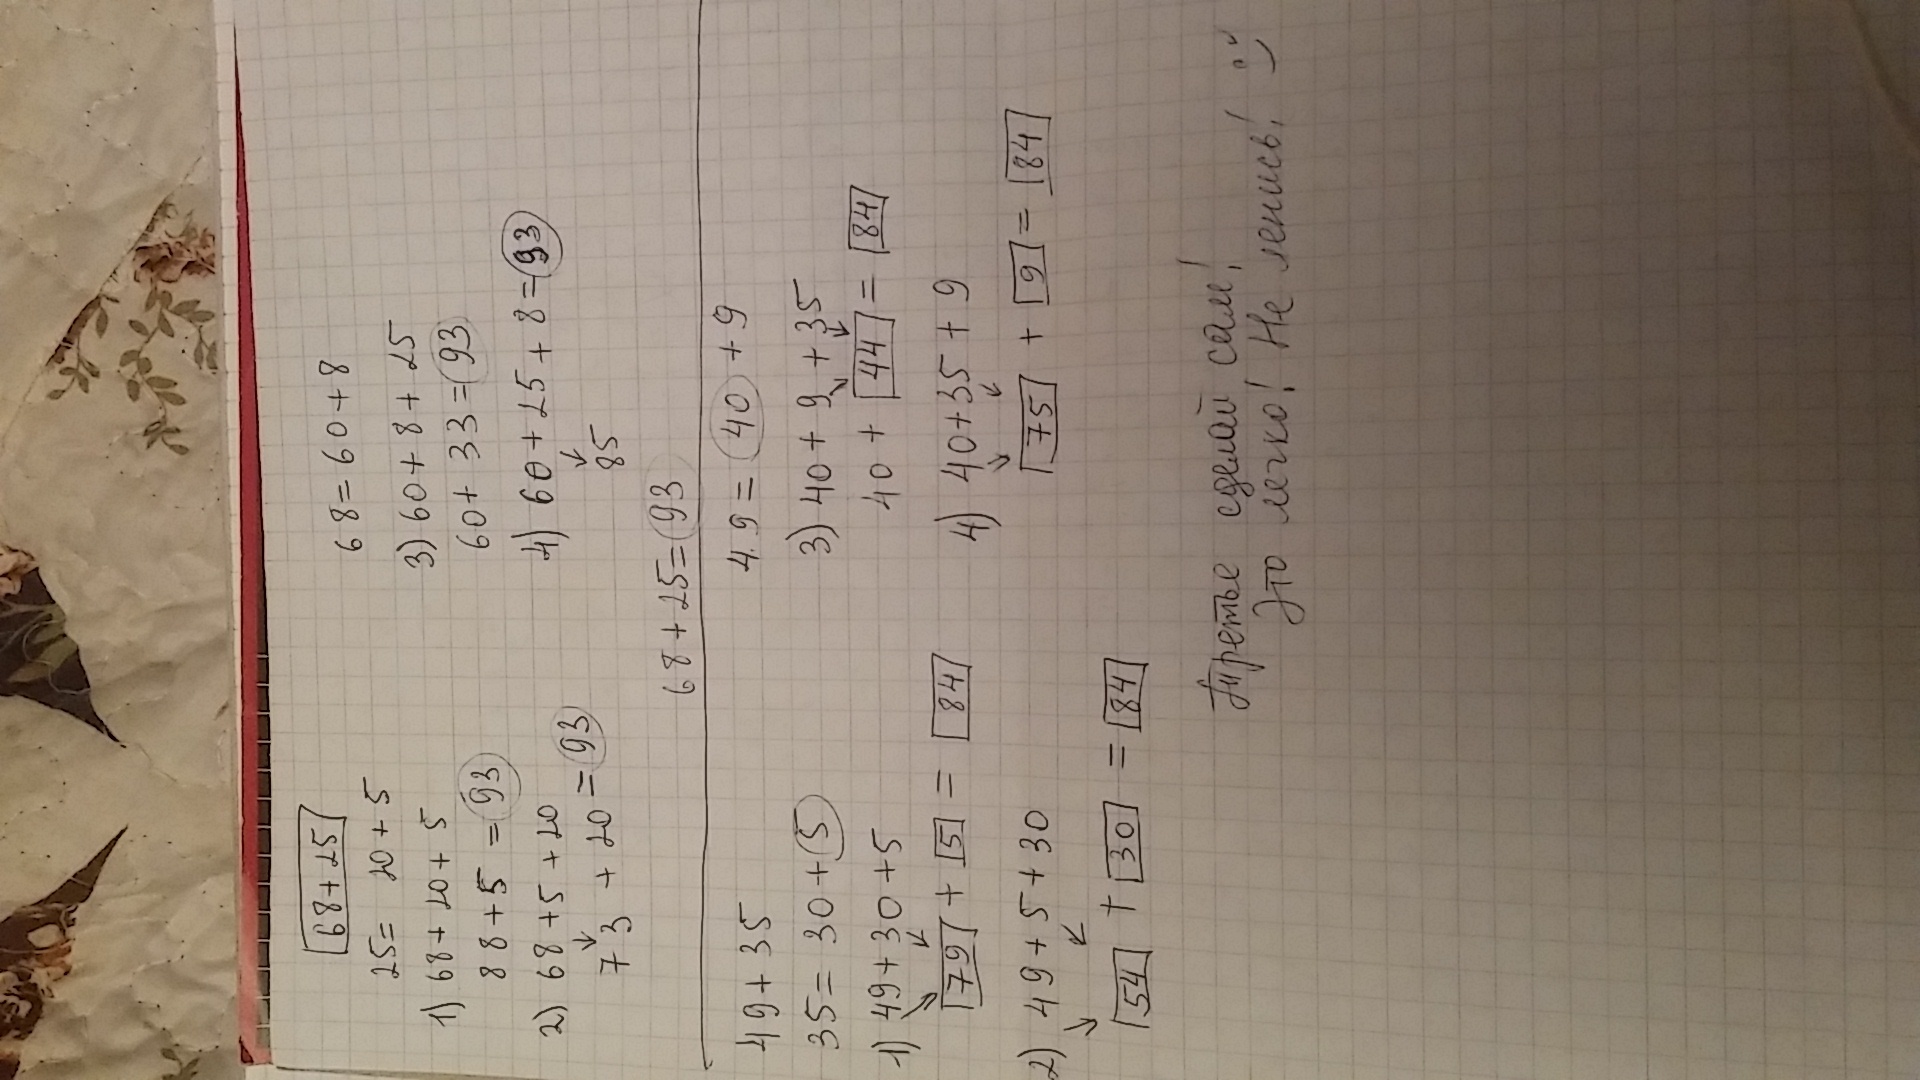 68+25
25= 20+5
1) 68+20+5
88+5 =93
2) 68+5+20=93
73 +20
68=60+8
3) 60+8+25
60+33=93
4) 60+25+8=93
85
68+25=93
49+35
35=30+5
1) 49+30+5
79+5= 84
2) 49+5+30
54+30=84
49=40+9
3) 40+9+35
40+44=84
4) 40+35+9
75+9=84
Третье сделай сам!
Это легко! Не ленись!